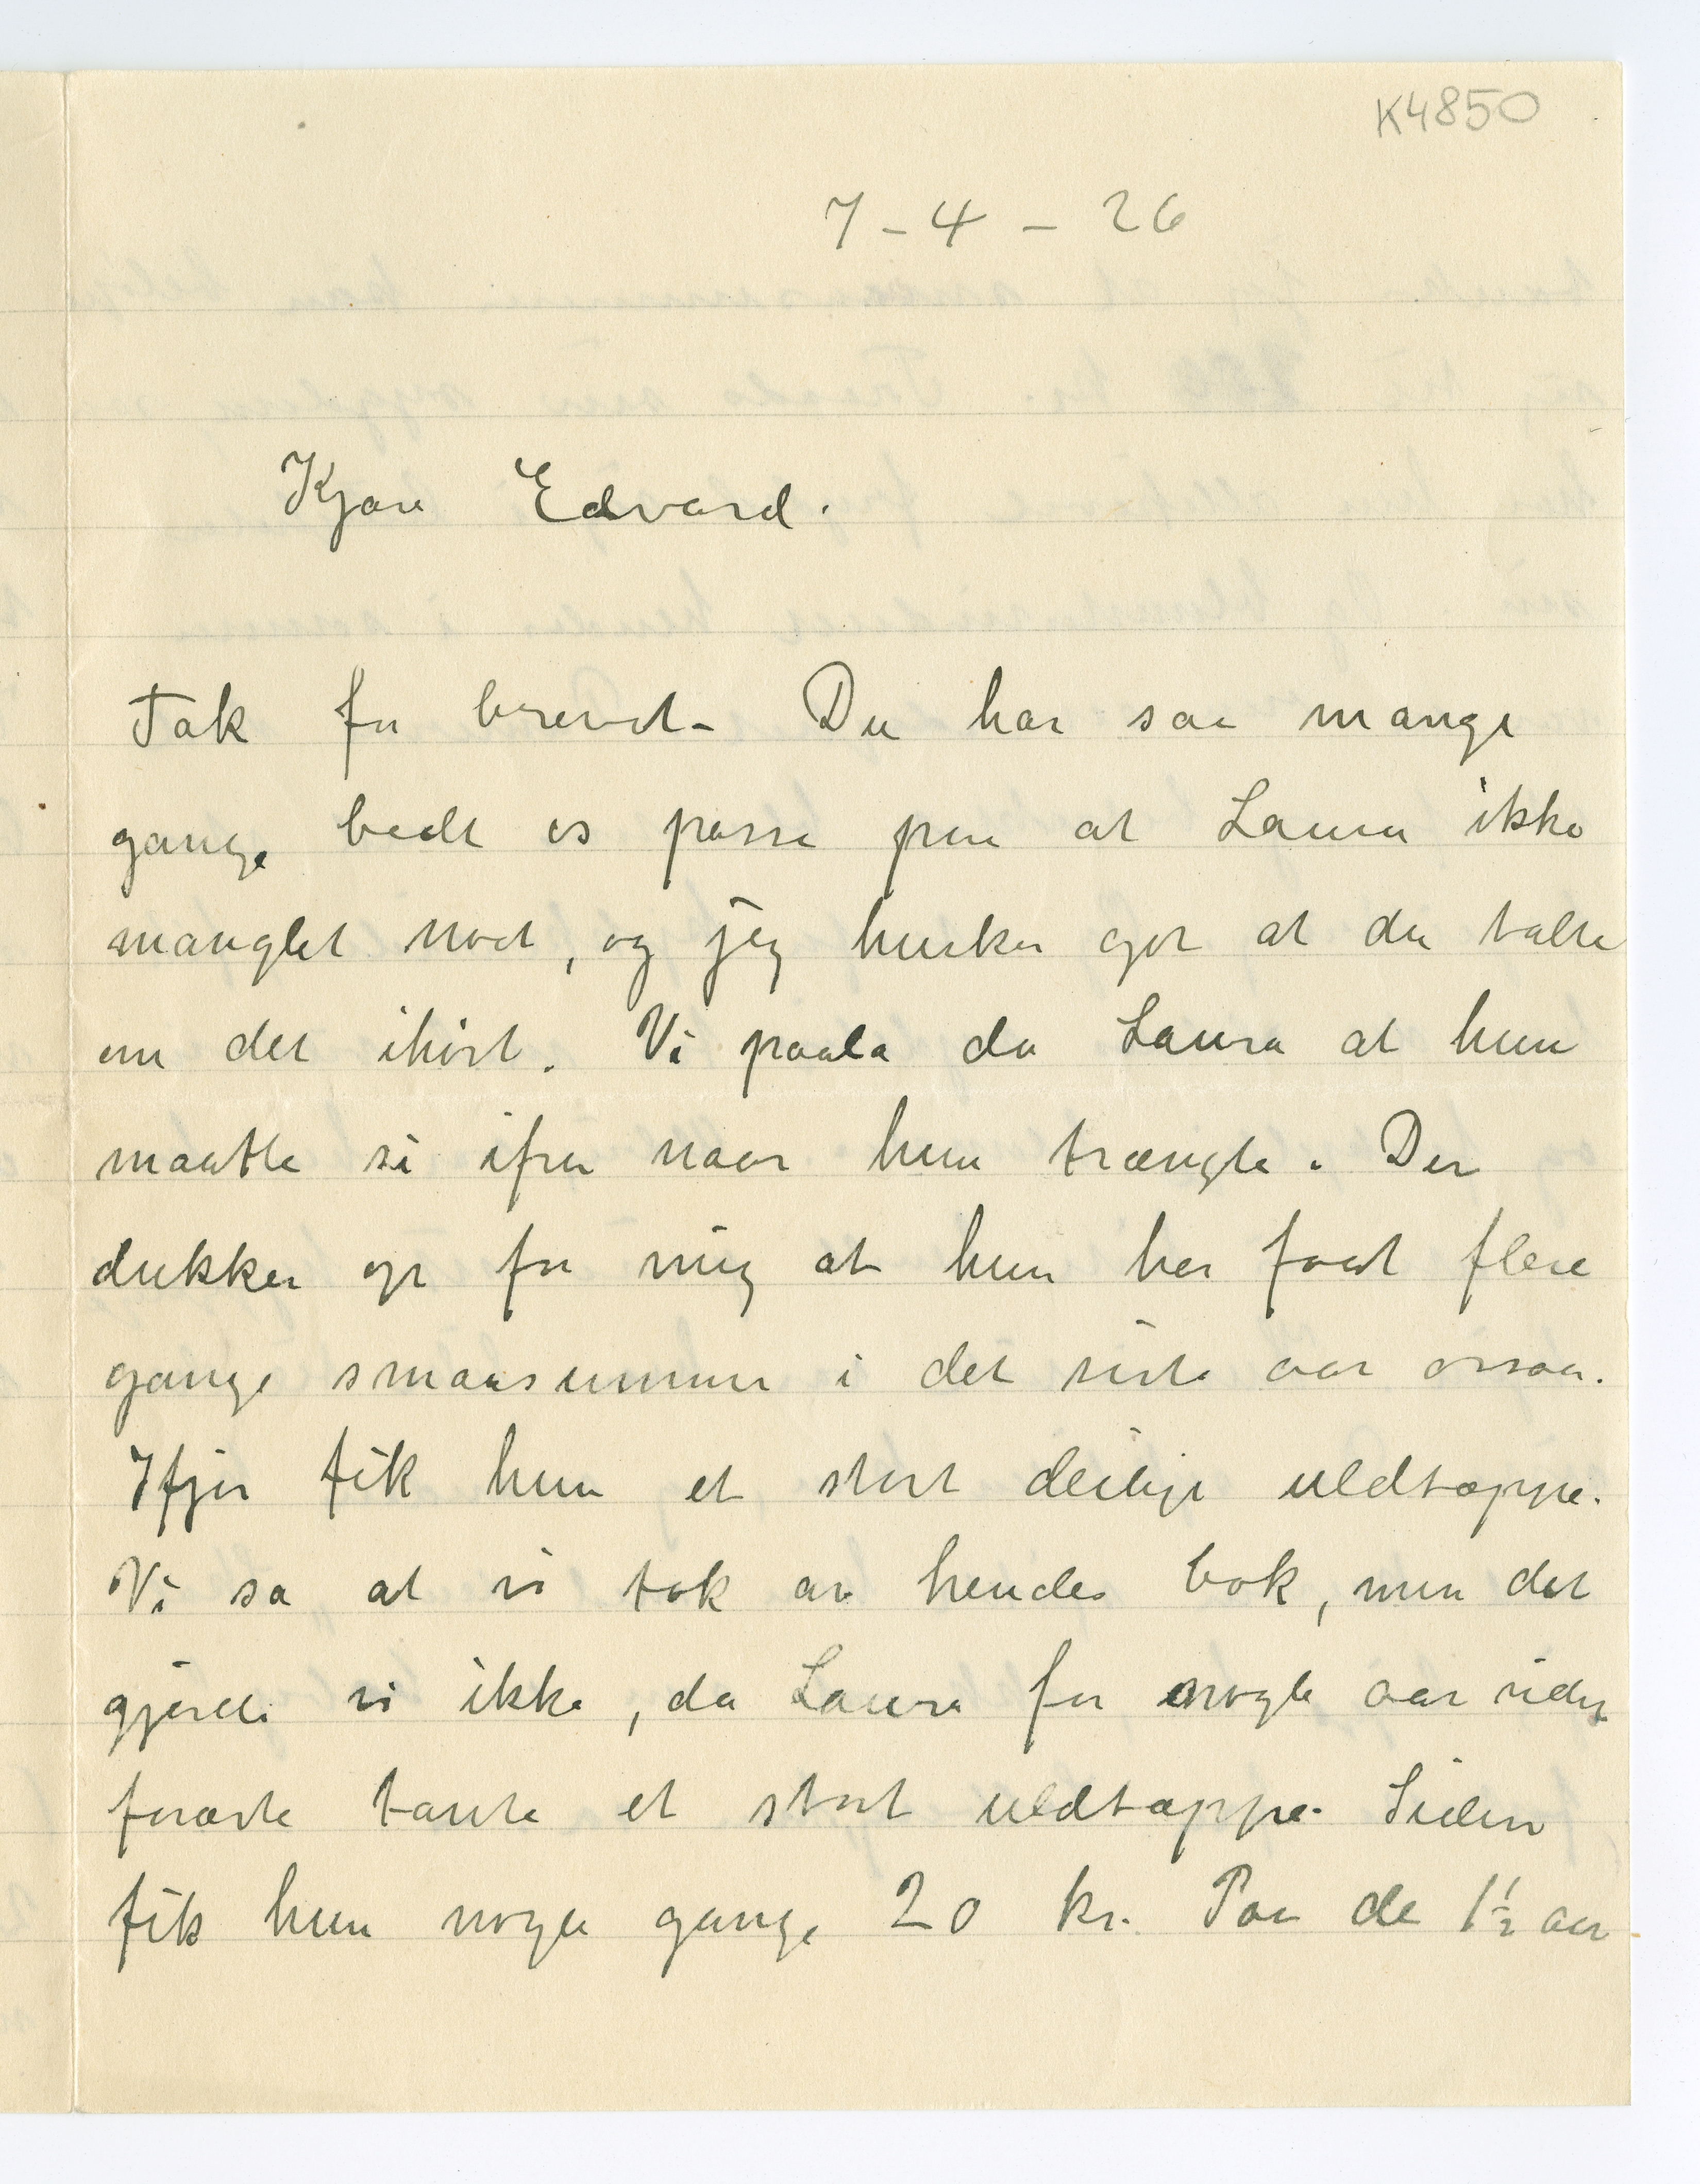 K4850
7-4-26
Kjære Edvard.
Tak for brevet- Du har saa mange
gange bedt os passe paa at Laura ikke
manglet noet, og jeg husker got at du talte
om det ihöst. Vi paala da Laura at hun
maatte si ifra naar hun trængte. Der
dukker op for mig at hun har faat flere
gange smaasummer i det siste aar ossaa.
Ifjor fik hun et stort deilige uldtæppe.
Vi sa at vi tok av hendes bok, men det
gjorde vi ikke, da Laura for nogle aar siden
forærte tante et stort uldtæppe. Siden
fik hun nogle gange 20 kr. Paa de 1½ aar